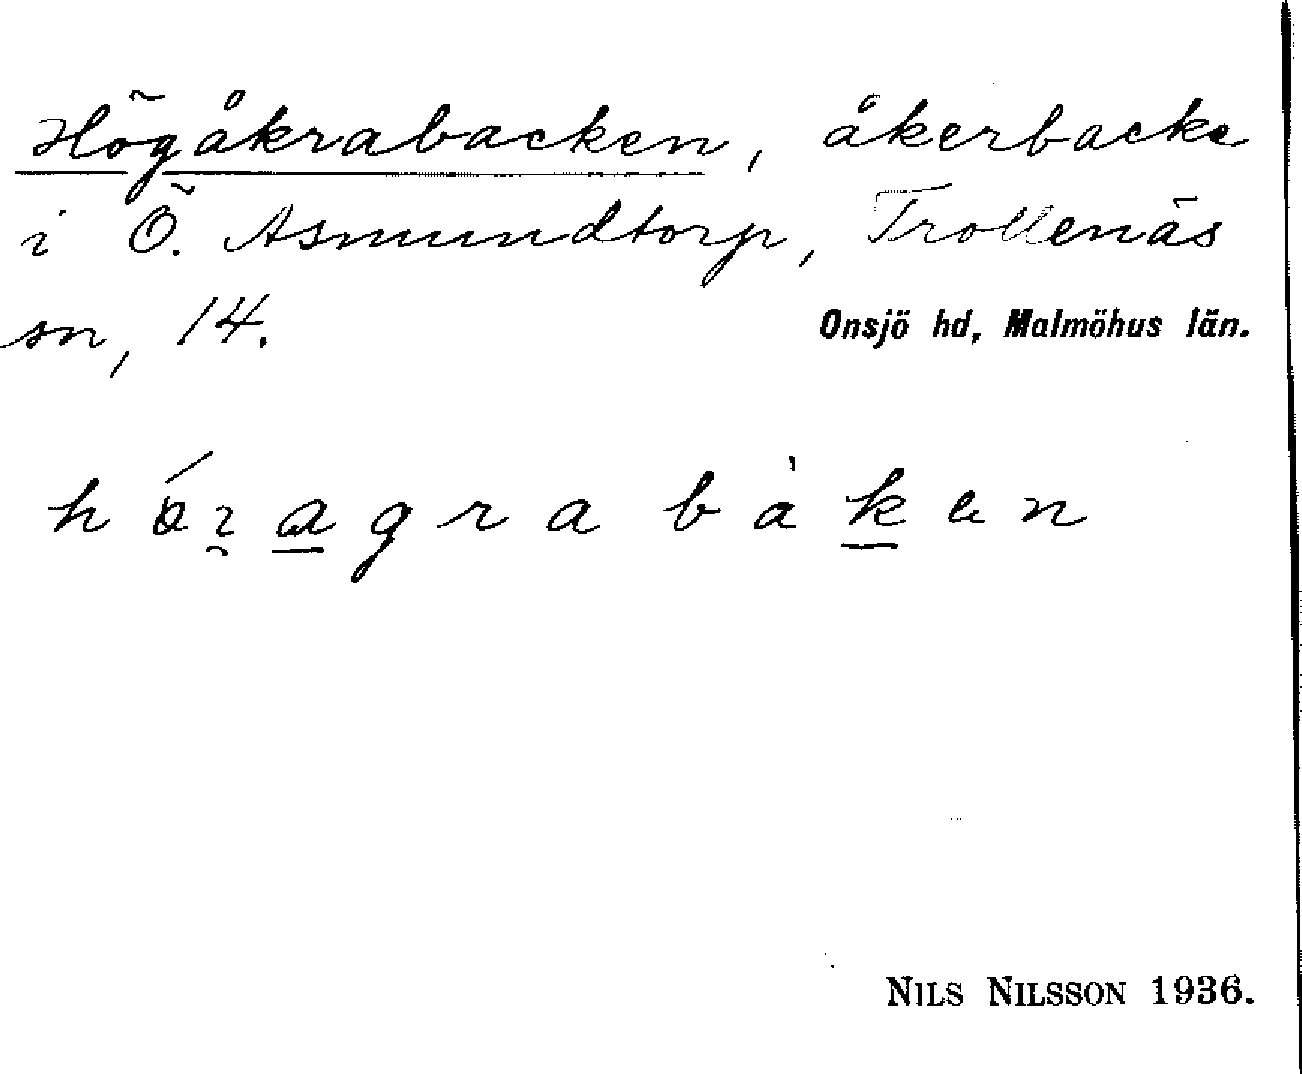 Högåkrabacken, åkerbacke
i Ö. Asmundtorp, Trollenäs
sn, 14.
Onsjö hd, Malmöhus län.
NILS NILSSON 1936.